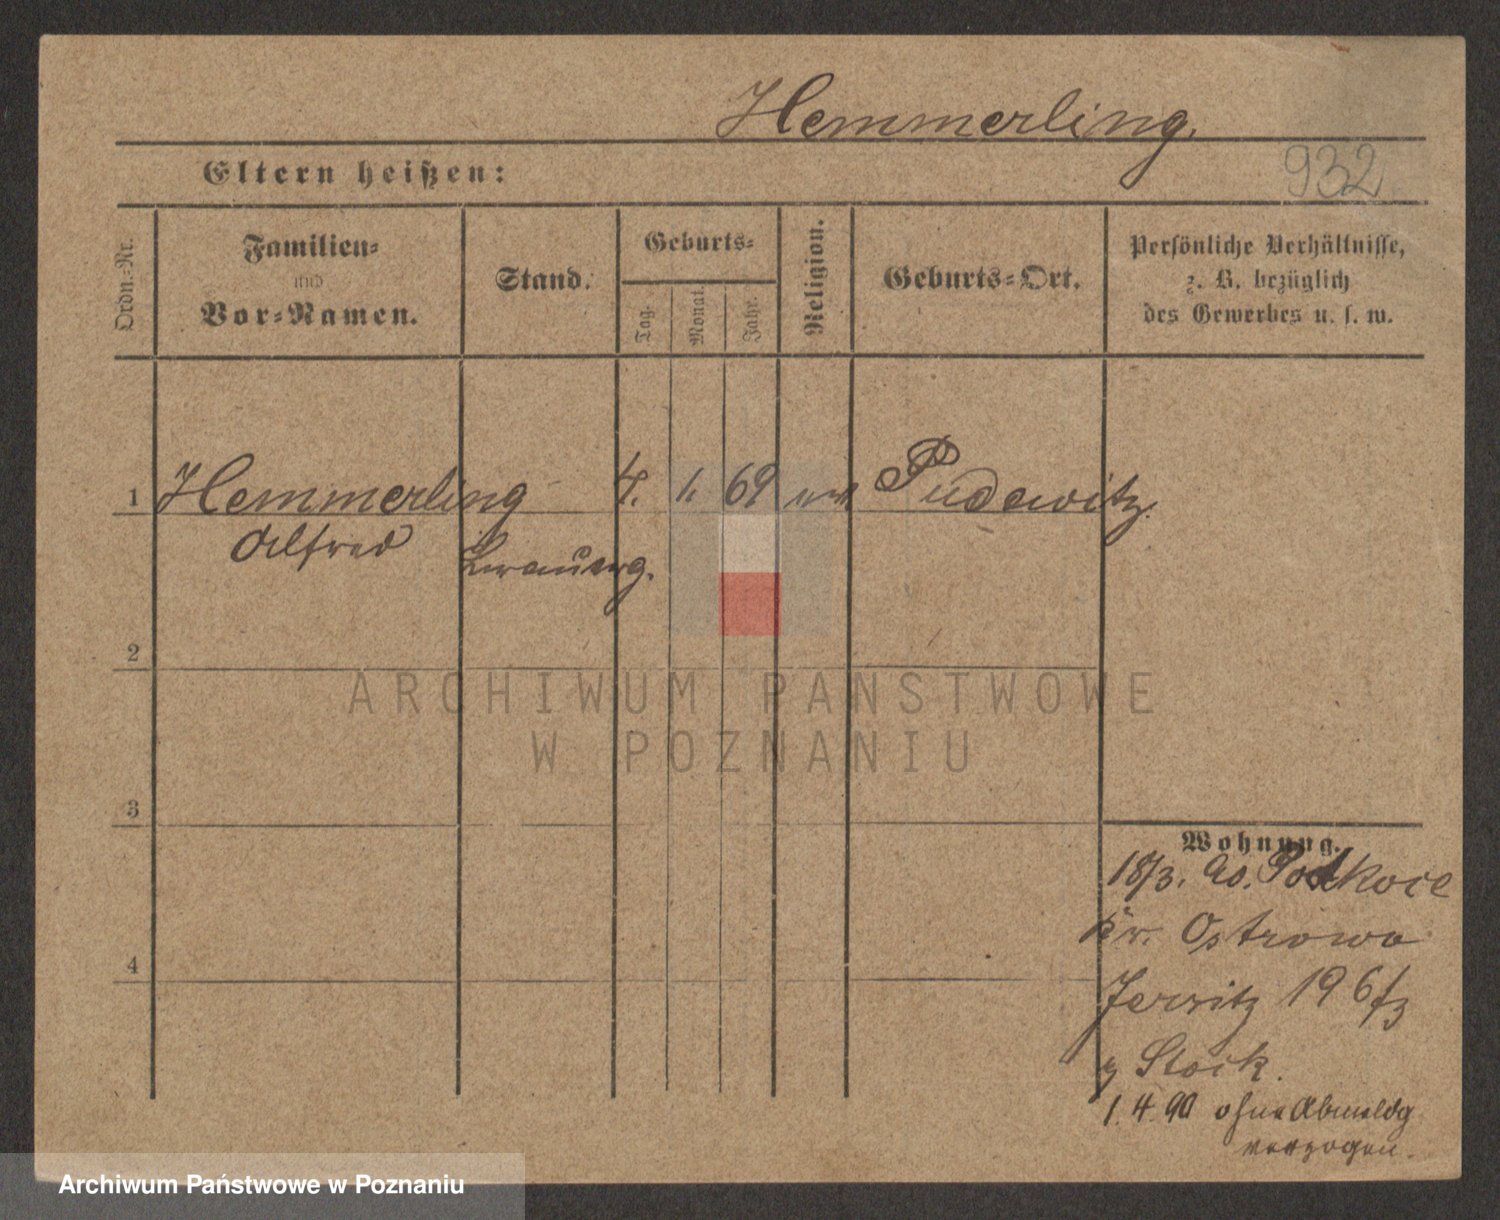 Hemmerling.
932
Eltern heißen:
Ordn.-Nr.
Familien-
und
Vor-Namen.
Stand.
Geburts-
Tag.
Monat.
Jahr.
Religion.
Geburts-Ort.
Persönliche Verhältnisse,
z. B. bezüglich
des Gewerbes u. s. w.
1 Hemmerling 4. 1. 69 Pudewitz.
Alfred
2
ARCHIWUM PAŃSTWOWE
W POZNANIU
3
Wohnung.
18/3. 90.
Kr. Ostrowo
4
Jersitz 196/3
Stock.
1.4.90 ohne Abmeldg
verzogen.
Archiwum Państwowe w Poznaniu